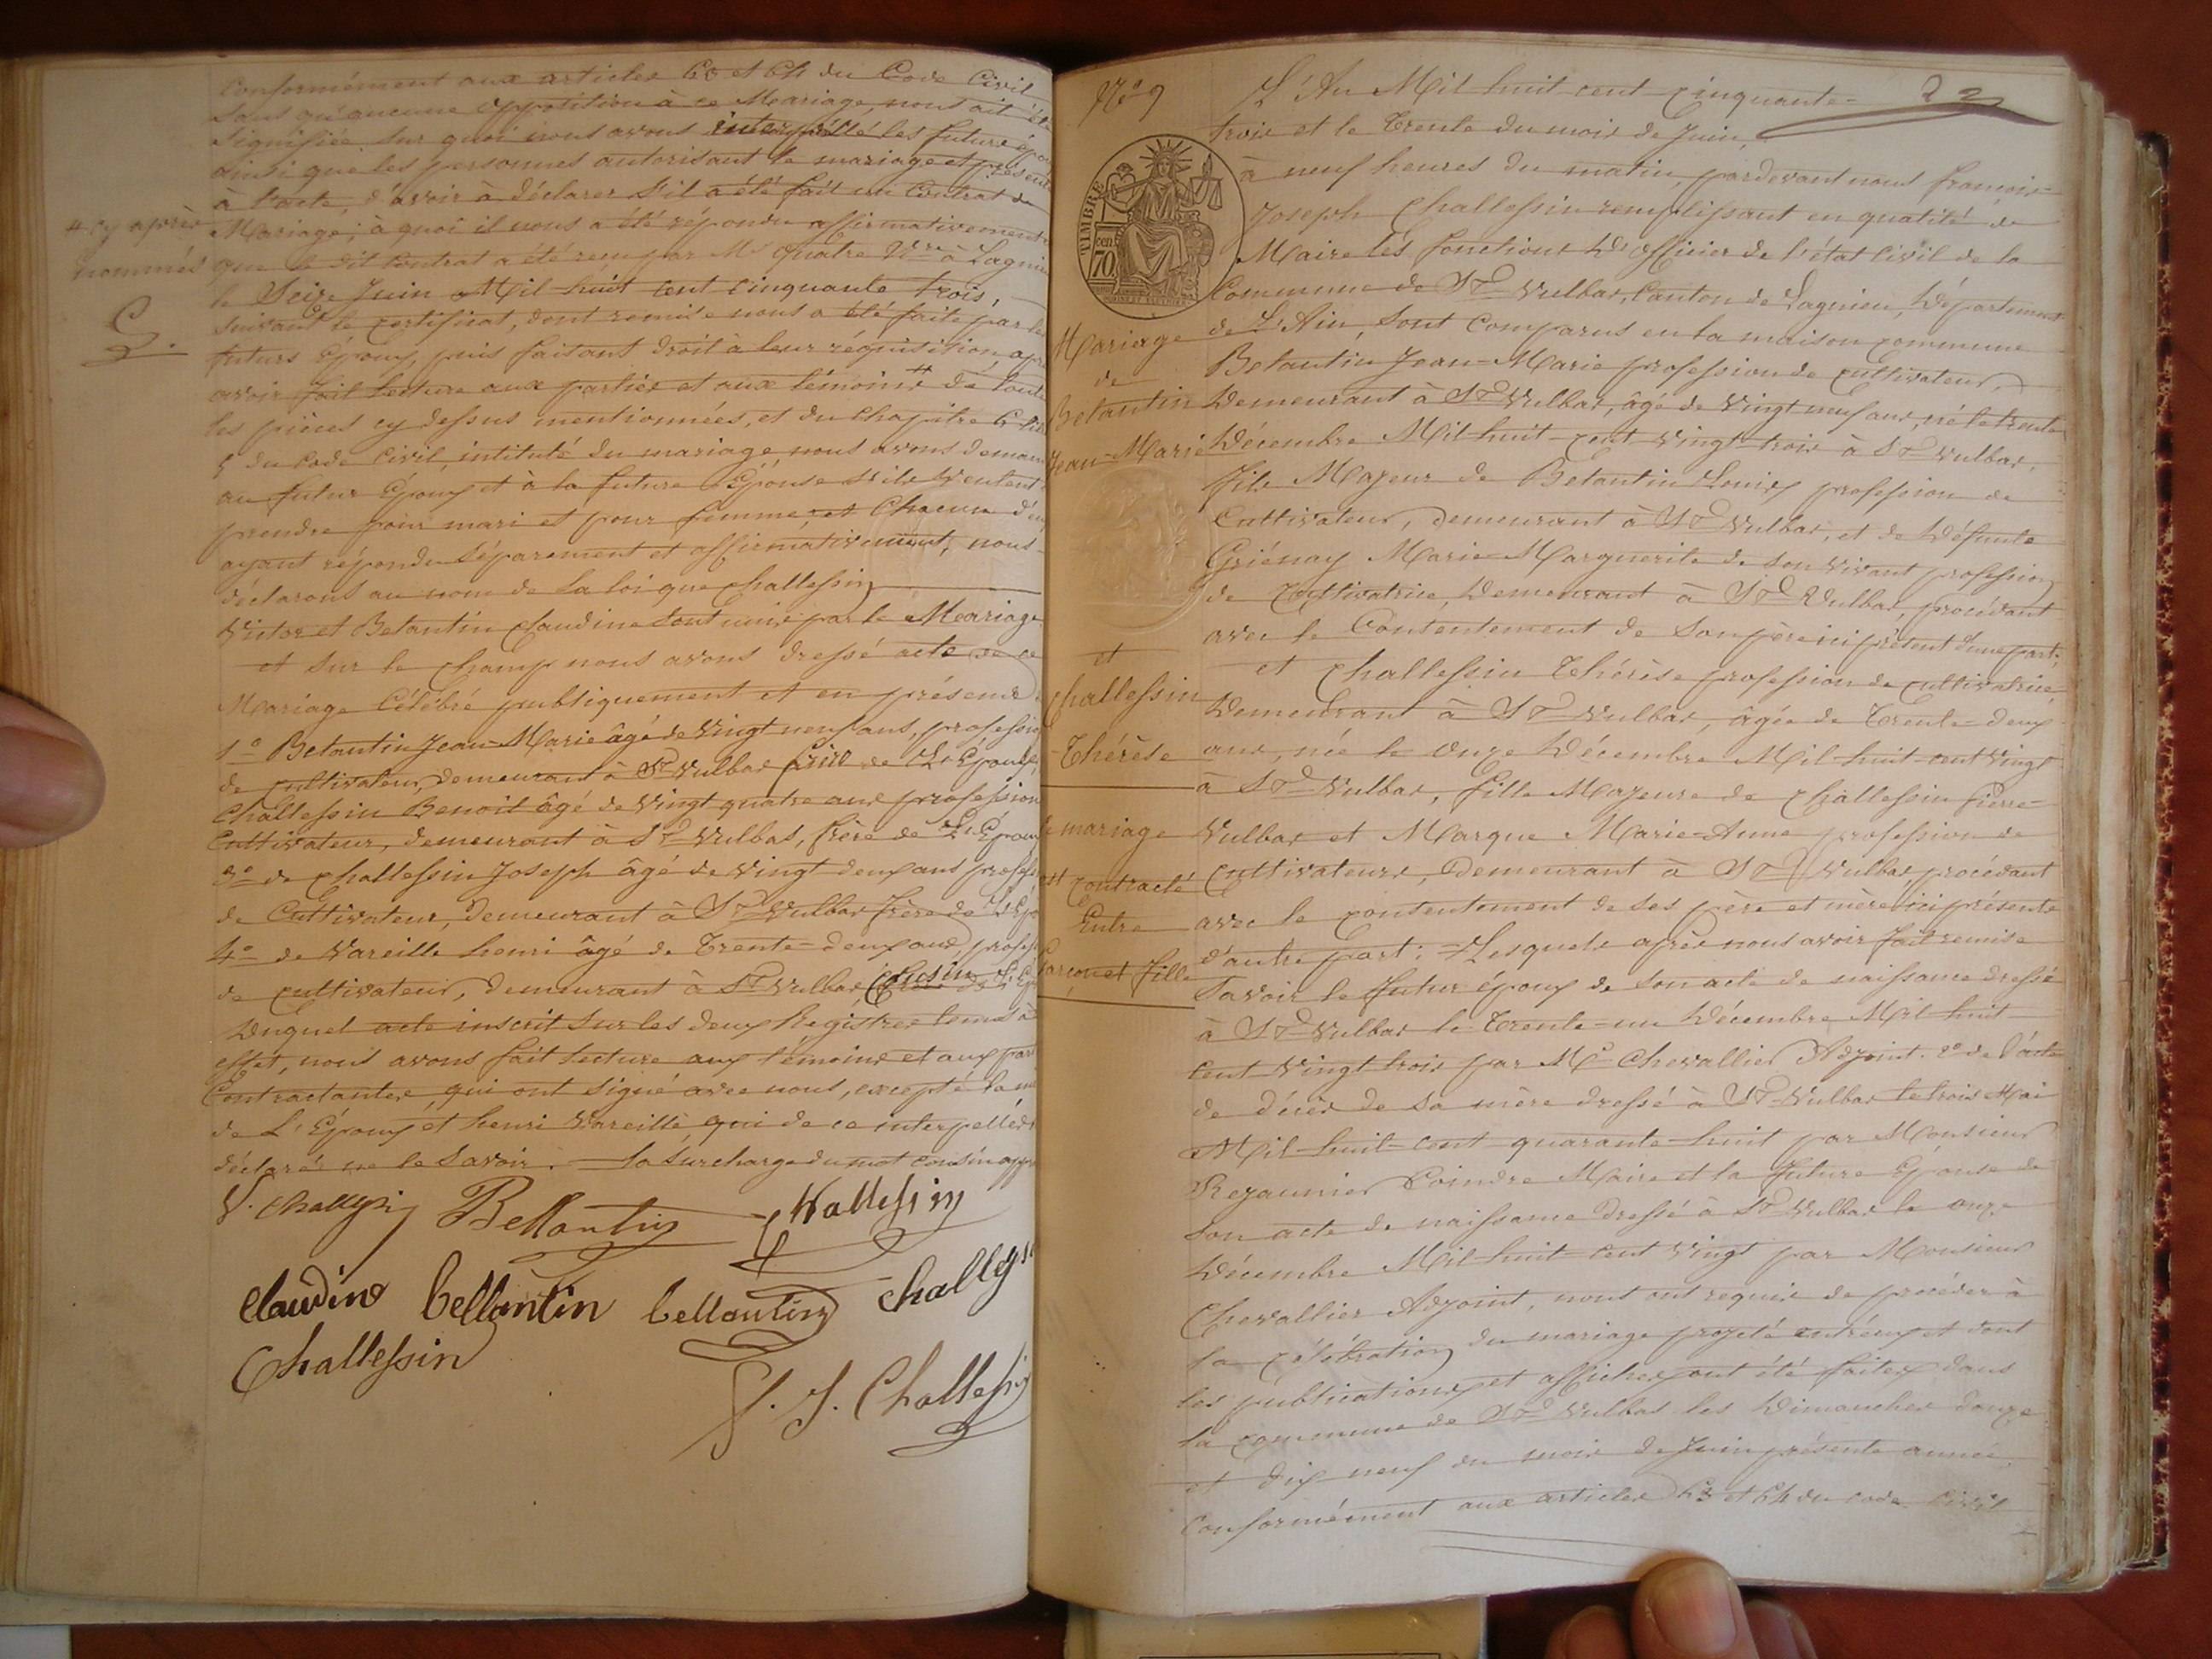 Conformément aux articles 63 et 64 du Code Civil
sans qu'aucune opposition à ce Mariage, nous ait été
signifiée. sur quoi nous avons interpellé les futurs épou
ainsi que les personnes autorisant le mariage et présent
à l'acte, d'avoir à déclarer s'il a été fait un Contrat de
Mariage; à quoi il nous a été répondu affirmativement
que le dit Contrat a été reçu par Me quatre Nre à Lagnieu
le Seize Juin Mil huit cent cinquante trois,
suivant le certificat, dont remise nous a été faite par les
futurs Époux, puis faisant droit à leur réquisition, après
avoir fait lecture aux parties et aux témoins # de toute
les pièces cy dessus mentionnées, et du chapitre 6 titre
5 du Code Civil, intitulé du mariage, nous avons deman
au futur Époux et à la future Épouse s'ils veulent
prendre pour mari et pour femme, et Chacun d'eu
ayant répondu séparément et affirmativement, nous
déclarons au nom de la loi que challessin
Victor et Betantin claudine sont unis par le Mariage
et sur le champ nous avons dressé acte de ce
Mariage Célébré publiquement et en présence
1° Betantin Jean-Marie âgé de Vingt neuf ans, professio
de cultivateur, demeurant à St Vulbas frère de L'Épouse
Challessin Benoit âgé de Vingt quatre ans profession
Cultivateur, demeurant à St Vulbas, frère de L'Époux
3° de challessin Joseph âgé de Vingt deux ans profess
de Cultivateur, demeurant à St Vulbas frère de L'Épo
4° de Vareille henri âgé de Trente-deux ans, profess
de cultivateur, demeurant à St Vulbas, Cousin de L'Ép
Duquel acte inscrit sur les deux Registres tenus à
effet, nous avons fait lecture aux témoins et aux part
Contractantes, qui ont signé avec nous, excepté la
de L'Époux et henri Vareille, qui de ce interpellés
déclarés ne le savoir. — la surcharge du mot cousin app
V. challessin Bellantin challessin
Claudine bellantin bellantin challess
Challessin
f. J. Challessin
# cy après
nommés
C.
N° 9
22
L'An Mil huit cent cinquante-
trois et le Trente du mois de Juin,
à neuf heures du matin, pardevant nous françois-
Joseph Challessin remplissant en qualité de
Maire les fonctions D'officier de l'état Civil de la
Commune de St Vulbas, Canton de Lagnieu, Département
de L'Ain, sont comparus en la maison commune
Betantin Jean-Marie profession de cultivateur,
Demeurant à St Vulbas, âgé de Vingt neuf ans, né le trente
Décembre Mil huit cent Vingt trois à St Vulbas,
fils Majeur de Betantin Louis profession de
Cultivateur, demeurant à St Vulbas, et de Défunte
Griénay Marie-Marguerite de son vivant profession
de Cultivatrice, Demeurant à St Vulbas, procédant
avec le Consentement de son père ici présent d'une part;
et challessin Thérèse profession de cultivatrice
Demeurant à St Vulbas, âgée de Trente-deux
ans, née le onze Décembre Mil huit cent Vingt
à St Vulbas, fille Majeure de challessin pierre-
Vulbas et Marque Marie-Anne profession de
Cultivateurs, Demeurant à St Vulbas, procédant
avec le consentement de ses père et mère ici présents
d'autre part; Lesquels après nous avoir fait remise
Savoir le futur époux de son acte de naissance dressé
à St Vulbas le Trente-un Décembre Mil huit
Cent Vingt trois par Mr Chevallier Adjoint. 2° de l'acte
de décès de sa mère dressé à St Vulbas le trois Mai
Mil huit-cent quarante-huit par Monsieur
Rejaunier Coindre Maire et la future Épouse de
son acte de naissance dressé à St Vulbas le onze
Décembre Mil huit cent Vingt par Monsieur
Chevallier Adjoint, nous ont requis de procéder à
la célébration du mariage projeté entr'eux et dont
les publications et affiches ont été faites dans
la commune de St Vulbas les Dimanches douze
et dix neuf du mois de Juin présente année
Conformément aux articles 63 et 64 du code Civil
TIMBRE
cen 70
Mariage
de
Betantin
Jean-Marie
et
challessin
Thérèse
le mariage
est contracté
Entre
Garçon et fille